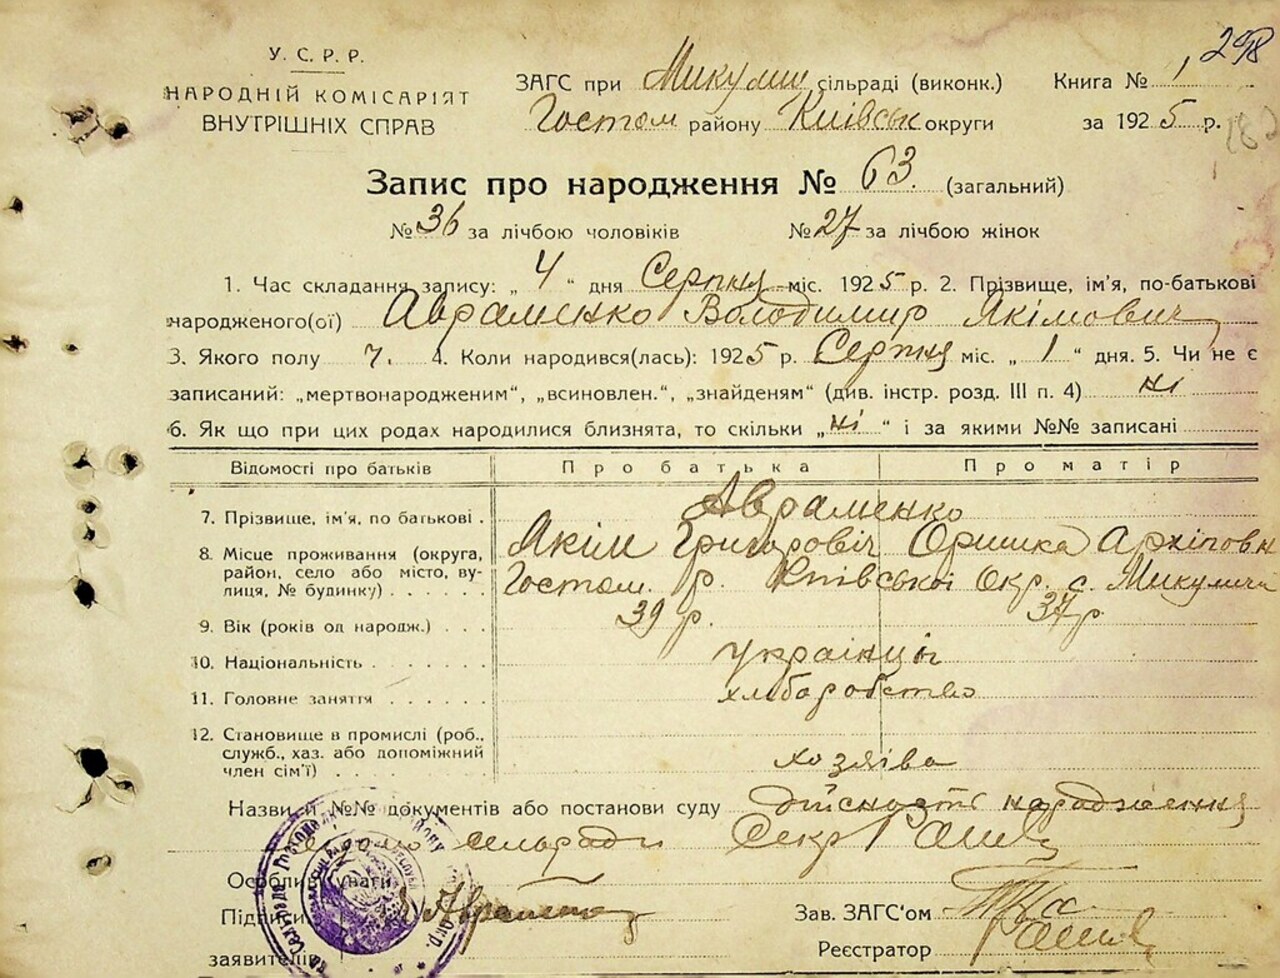 298
У. С. Р. Р.
НАРОДНІЙ КОМІСАРІЯТ
ВНУТРІШНІХ СПРАВ
ЗАГС при Микулич сільраді (виконк.)
Гостом району Київськ округи
Книга № 1
за 1925 р.
Запис про народження № 63. (загальний)
№ 36 за лічбою чоловіків № 27 за лічбою жінок
1. Час складання запису: „ 4 “ дня Серпня міс. 1925 р. 2. Прізвище, ім'я, по-батькові
народженого(ої) Авраменко Володимир Якімович
3. Якого полу ч. 4. Коли народився(лась): 1925 р. Серпня міс. „ 1 “ дня. 5. Чи не є
записаний: „мертвонародженим“, „всиновлен.“, „знайденям“ (див. інстр. розд. III п. 4) ні
6. Як що при цих родах народилися близнята, то скільки „ні“ і за якими №№ записані
Відомості про батьків Про батька Про матір
7. Прізвище, ім'я, по батькові . Авраменко
Якім Григоровіч Оришка Архіповн
8. Місце проживання (округа,
район, село або місто, ву-
лиця, № будинку) . . . . . .
Гостом. р. Київської Окр. с. Микуличи
9. Вік (років од народж.) . . . 39 р. 37 р
10. Національність . . . . . . . українці
11. Головне заняття . . . . . . хліборобство
12. Становище в промислі (роб.,
служб., хаз. або допоміжний
член сім'ї) . . . . . . . . хозяіва
Назви й №№ документів або постанови суду дійсність народження
сельради Секр
Підписи Авраменко
заявителів
Зав. ЗАГС'ом
Реєстратор